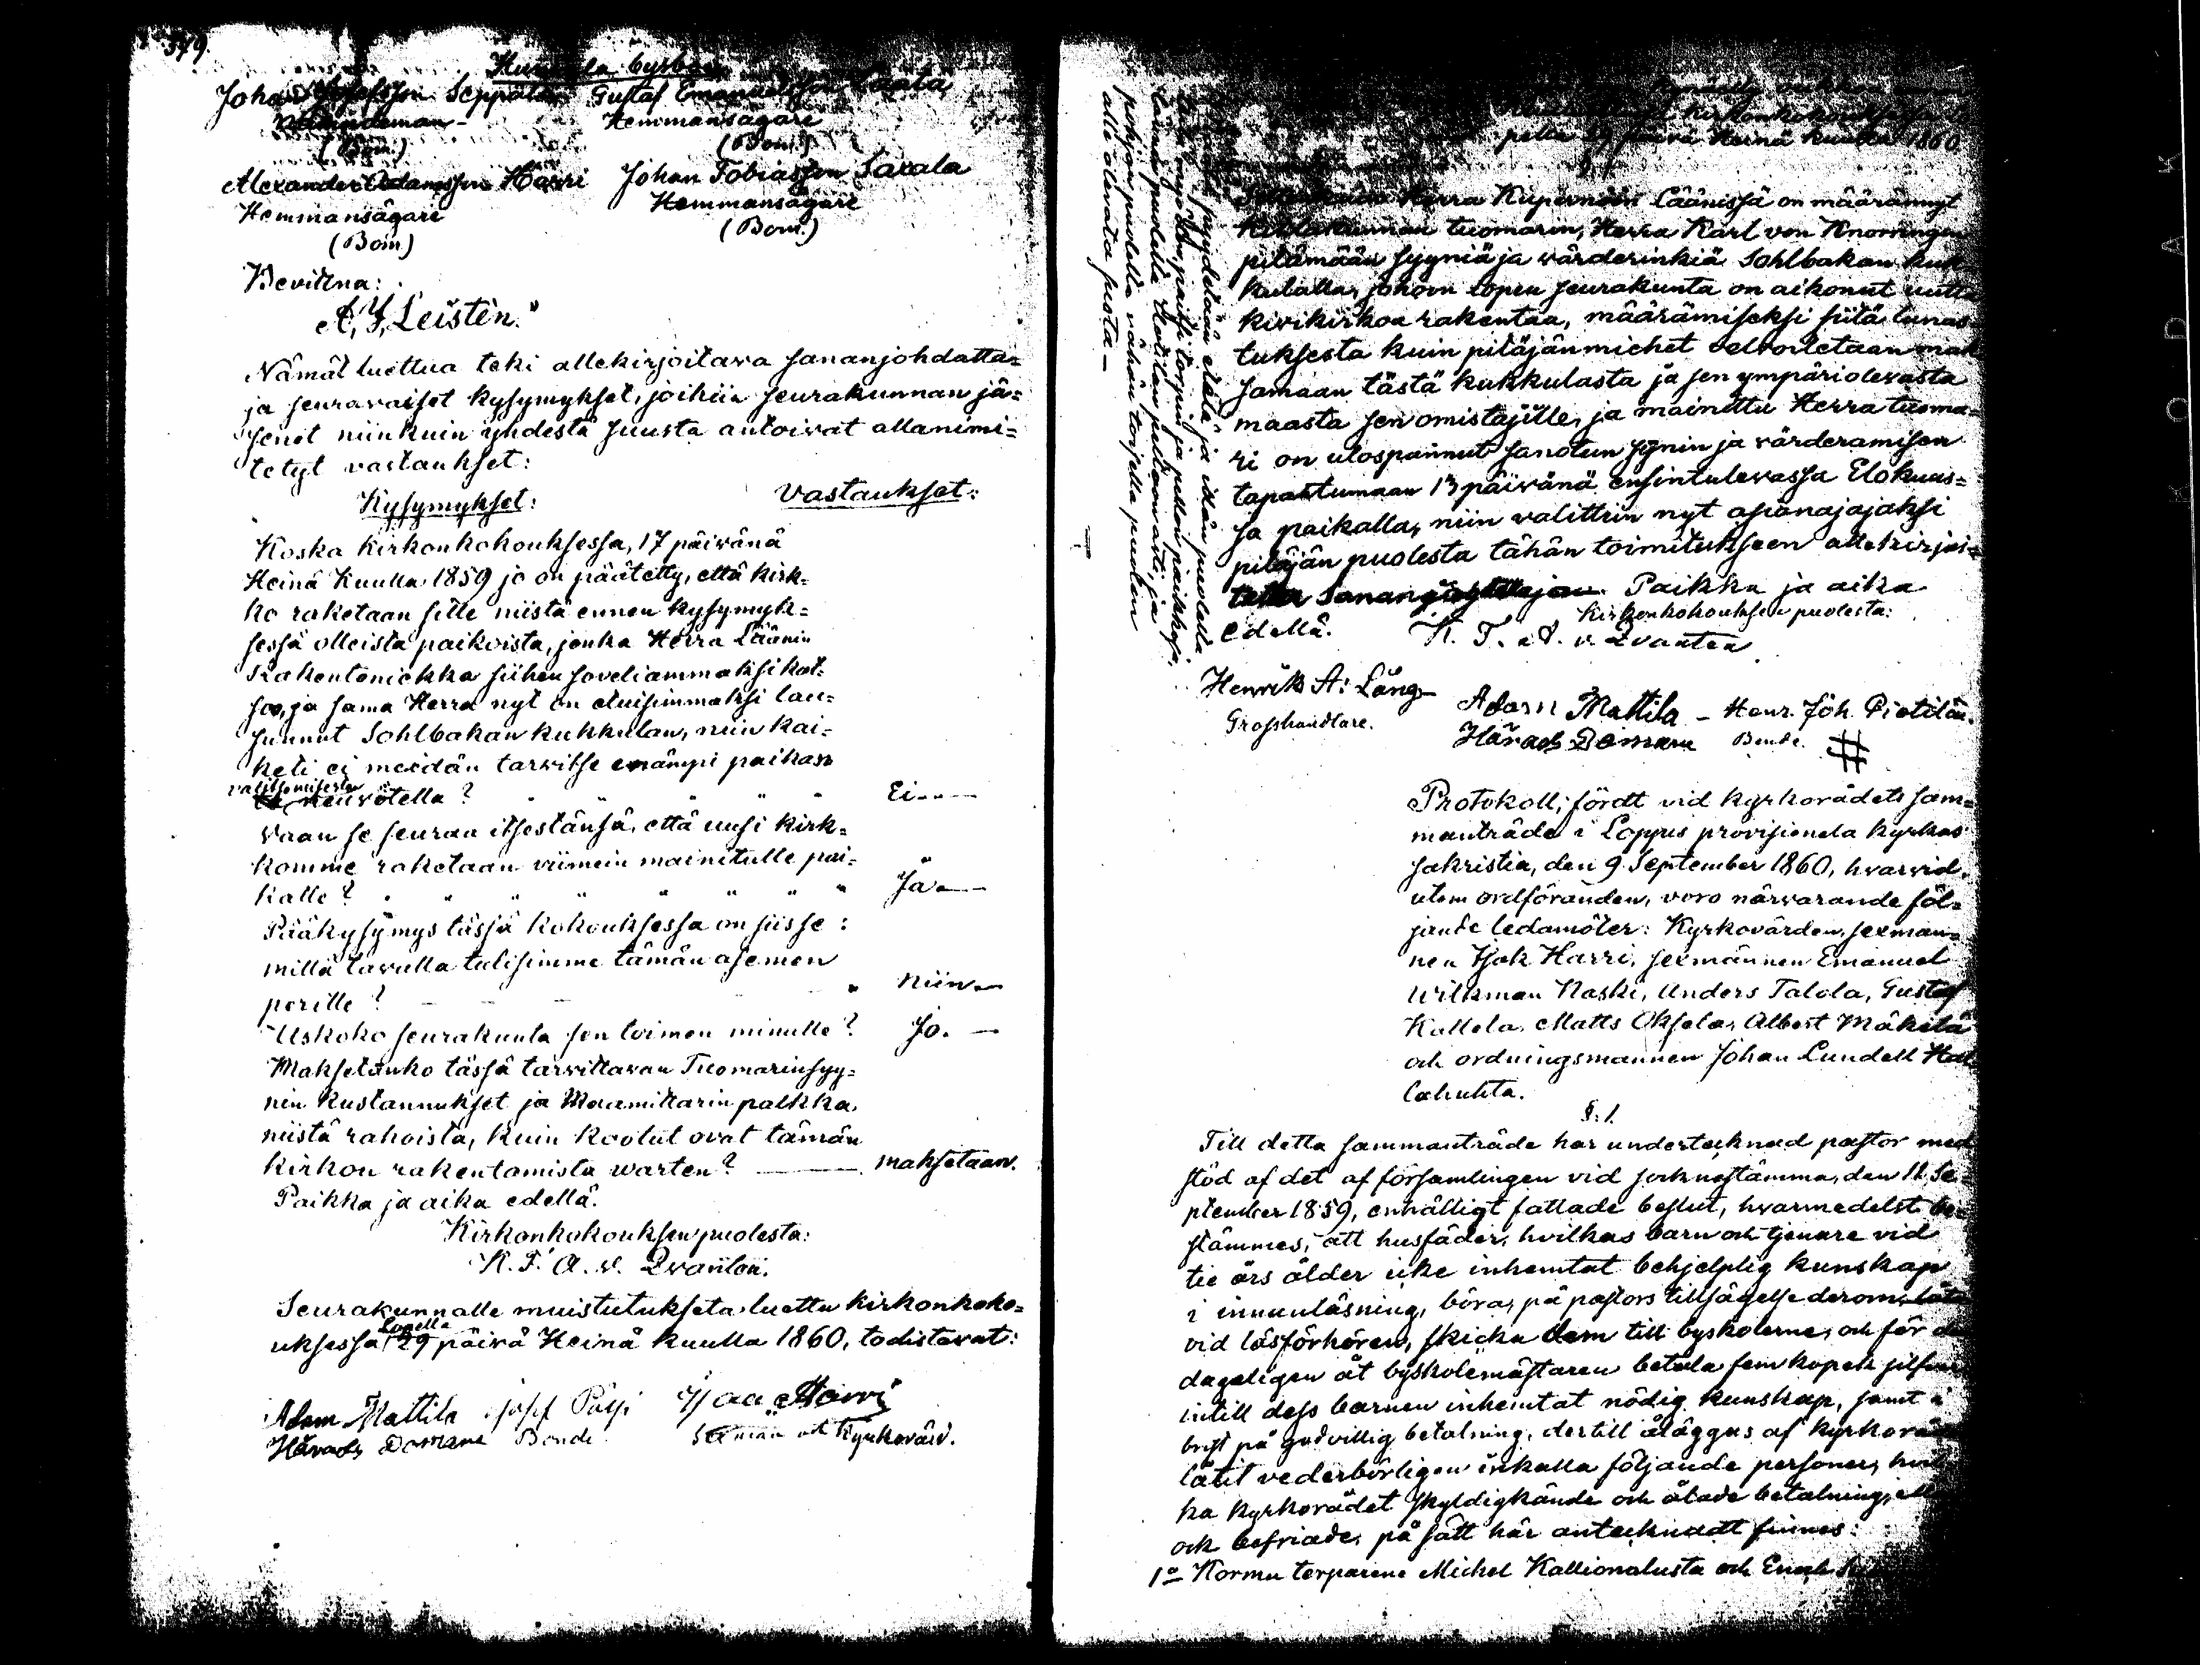 379.
Johan Seppälä Gustaf Emanuelsson Laala
Hemmansägare
(Bom.) (Bom.)
Alexander Adamsson Harri Johan Tobiasson Saxala
Hemmansägare Hemmansägare
(Bom) (Bom.)
Bevittna:
A. J. Leistèn."
Nämät luettua teki allekirjoitava sananjohdatta=
ja seuravaiset kysymykset, joihin seurakunnan jä=
senet niinkuin yhdestä suusta antoivat allanimi=
tetyt vastaukset:
Kysymykset: Vastaukset:
Koska Kirkonkokouksessa, 17 päivänä
Heinä Kuulla 1859 jo on päätetty, että kirk=
ko raketaan sille niistä ennen kysymyk=
sessä olleista paikoista, jonka Herra Läänin
Rakentoniekka siihen soveliammaksi kat=
soo, ja sama Herra nyt on etuisimmaksi lau=
sunnut Sohlbakan kukkulan, niin kai=
keti ei meidän tarvitse enämpi paikan
valitsemisesta neuvotella? Ei.
Vaan se seuraa itsestänsä, että uusi kirk=
komme raketaan viimein mainitulle pai=
kalle? Ja.
Pääkysymys tässä kokouksessa on siis se:
millä tavalla tulisimme tämän asemen
perille? Niin.
Uskoko seurakunta sen toimen minulle? Jo.
Maksetanko tässä tarvittavan Tuomarinsyy=
nin kustannukset ja Maamittarin palkka,
niistä rahoista, kuin kootut ovat tämän
kirkon rakentamista warten? maksetaan.
Paikka ja aika edellä.
Kirkonkokouksen puolesta:
K. F. A. v. Qvanten.
Seurakunnalle muistutukseta luettu kirkonkoko=
uksessa Lopella 29 päivä Heinä kuulla 1860, todistavat:
Adam Mattila Josef Päsi Isac Harri
Härads Domare Bonde. Sexman och Kyrkovärd.
pella 29 päivä Heinä kuulla 1860.
Herra Kupernöörí Läänissä on määrännyt
Kihlakunnan tuomarin, Herra Karl von Knorringen
pitämään syyniä ja värderinkiä Sohlbakan kuk=
kulalla, johon Lopen seurakunta on aikonut uutta
kivikirkoa rakentaa, määrämiseksi siitä lunas=
tuksesta kuin pitäjänmiehet velvoitetaan mak=
samaan tästä kukkulasta ja sen ympäriolevasta
maasta sen omistajille, ja mainittu Herra tuoma=
ri on ulospannut sanotun synin ja värderamisen
tapahtumaan 13 päivänä ensintulevassa Elokuus=
sa paikalla, niin valittiin nyt asianajajaksi
pitäjän puolesta tähän toimitukseen allekirjoi=
Paikka ja aika
edellä. Kirkonkokouksen puolesta:
K. F. A. v. Qvanten
Henrik A: Lång Adam Mattila – Henr. Joh. Pietilän.
Grosshandlare. Härads Domare Bonde. #
Protokoll, fördt vid kyrkorådets sam=
manträde i Loppis provisionela kyrkas
sakristia, den 9 September 1860, hvarvid,
utom ordföranden, voro närvarande föl=
jande ledamöter: Kyrkovärden, sexman=
nen Isak Harri, sexmännen Emanuel
Wilkman Naski, Anders Talola, Gustaf
Kallela, Matts Oksela, Albert Mäkelä
och ordningsmannen Johan Lundell
lahuhta.
§. 1.
Till detta sammanträde har undertecknad pastor med
stöd af det af församlingen vid socknestämma, den 11 Se=
ptember 1859, enhälligt fattade beslut, hvarmedelst be=
stämmes, att husfäder, hvilkas barn och tjenare vid
tie års ålder icke inhemtat behjelplig kunskap
i innanläsning, böra, på pastors tillsägelse derom
vid läsförhören, skicka dem till byskolerne, och för
dageligen åt byskolemästaren betala fem kopek silfver
intill dess barnen inhemtat nödig kunskap, samt i
brist på godvillig betalning, dertill åläggas af kyrkoråd
låtit vederbörligen inkalla följande personer, hvil=
ka kyrkorådet skyldigkände och ålade betalning,
och befriade, på sätt här antecknadt finnes:
1º Kormu torparene Michel Kallionalusta och Enoch